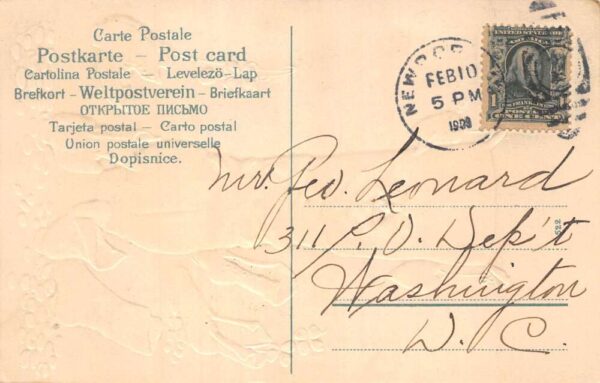 Carte Postale
Postkarte – Post card
Cartolina Postale – Levelező-Lap
Brefkort - Weltpostverein - Briefkaart
ОТКРЫТОЕ ПИСЬМО
Tarjeta postal – Carto postal
Union postale universelle
Dopisnice.
FEB 10
5 PM
UNITED STATES OF
FRANKLIN
ONE CENT
Mr. Geo. Leonard
311 P. O. Dep't
Washington
D. C.
622